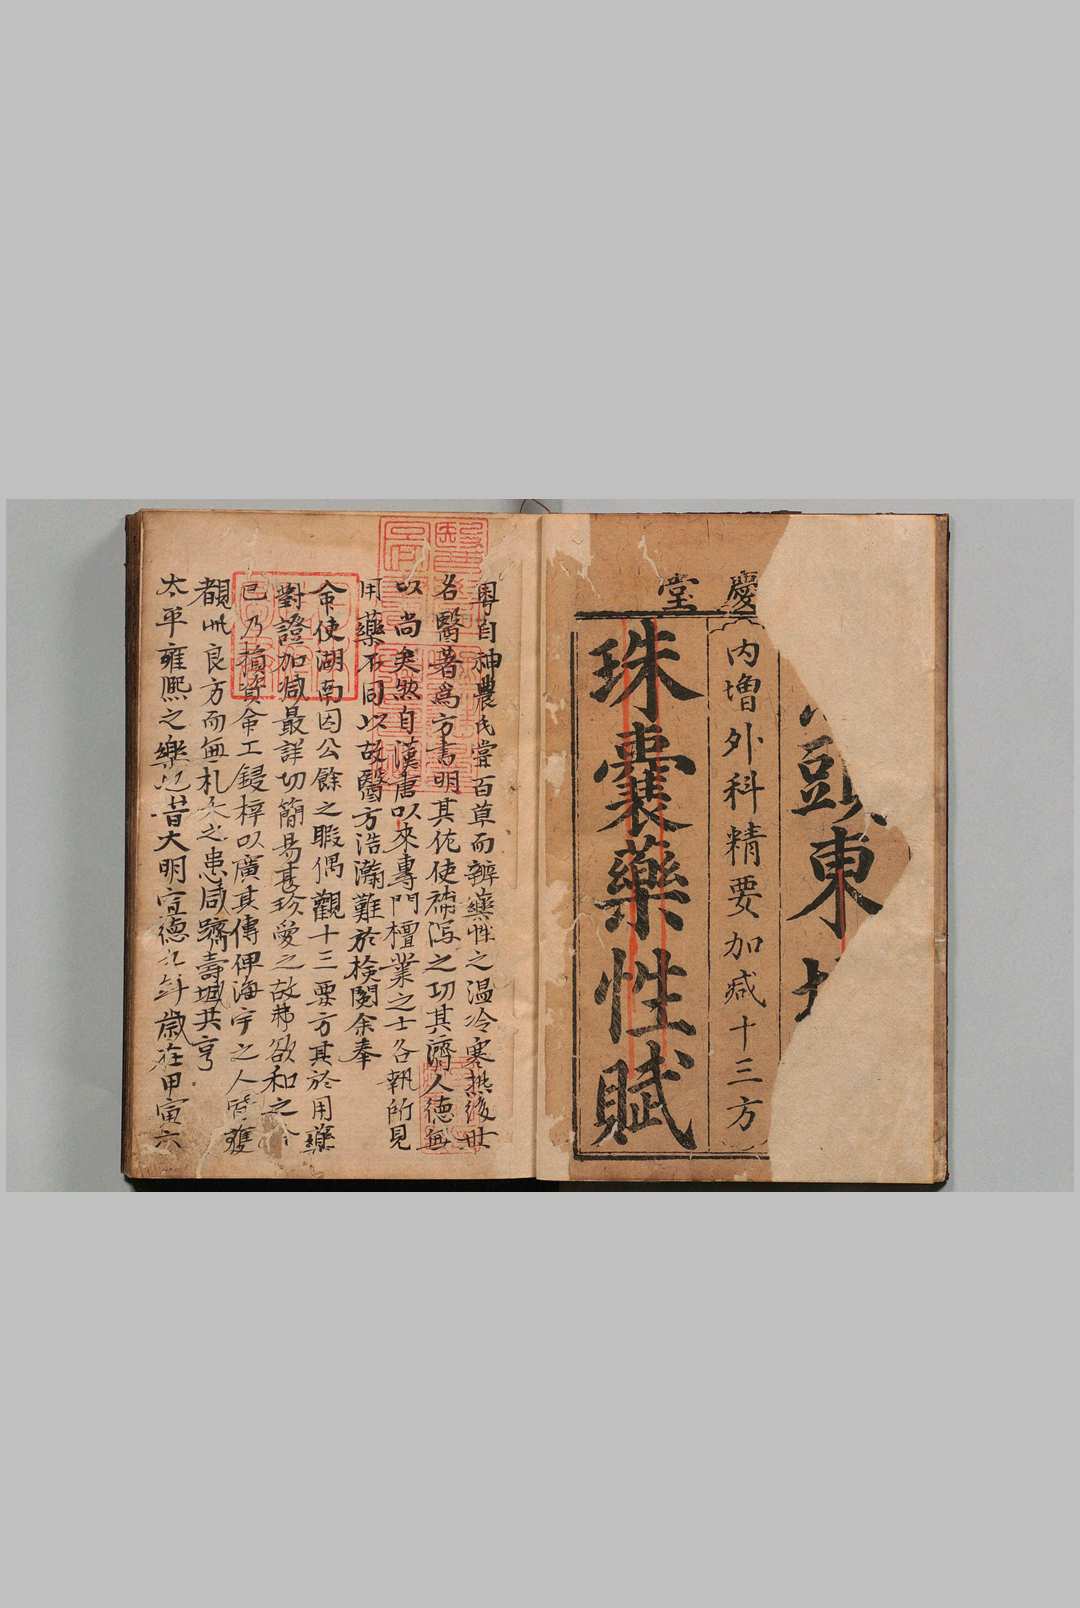 慶堂
頭東
內增外科精要加減十三方
珠囊藥性賦
粵自神農氏嘗百草而辨藥性之温冷寒熱後世
名醫著爲方書明其佐使補瀉之功其濟人德無
以尚矣然自漢唐以來專門檀業之士各執所見
用藥不同以故醫方浩瀚難於検閱余奉
命使湖南因公餘之暇偶觀十三要方其於用藥
對證加减最詳切簡易甚珍愛之故弗欲和之
已乃損資命工鋟梓以廣其傳俾海宇之人皆獲
覩此良方而無札夭之患同躋壽域共亨
太平雍熙之樂大明宣德九年歲在甲寅六